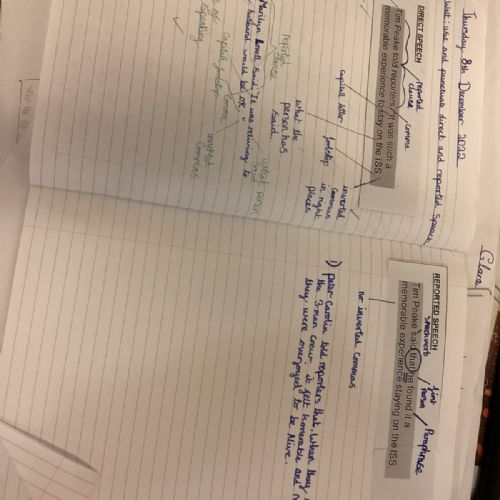 Thursday 8th December 2022
Walt: use and punctuate direct and reported speech
DIRECT SPEECH
reported
clause
comma
Tim Peake told reporters, "It was such a
memorable experience to stay on the ISS."
capital letter
fullstop
inverted
commas
in right
places
what the
person has
said.
reported
clause
Marilyn Lovell said, "It was relieving to
husband would be OK."
what person
said
speaking
capital
comma
inverted
commas
Clara
REPORTED SPEECH
speech verb
first
person
Paraphrase
Tim Peake said that he found it a
memorable experience staying on the ISS.
no inverted commas
1) Peter Carolin told reporters that. When they
the 3-man crew it felt honorable and
they were overjoyed to be Alive.